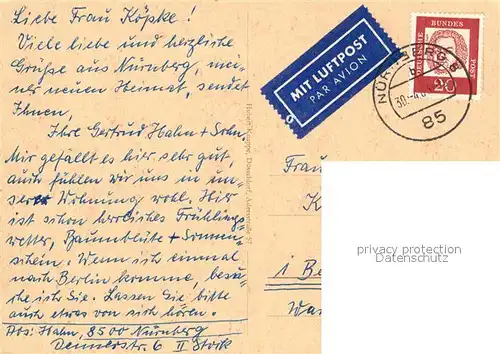 Liebe Frau Köpke!
Viele liebe und herzliche
Grüße aus Nürnberg, mei-
ner neuen Heimat, sendet
Ihnen,
Ihre Gertrud Hahn + Sohn.
Mir gefällt es hier sehr gut,
auch fühlen wir uns in un-
serer Wohnung wohl. Hier
ist schon herrliches Frühlings
wetter, Baumblüte + Sonnen-
schein. Wenn ich einmal
nach Berlin komme, besu-
che ich Sie. Lassen Sie bitte
auch etwas von sich hören.
Abs: Hahn, 8500 Nürnberg
6 II Stock
MIT LUFTPOST
PAR AVION
DEUTSCHE BUNDES POST
20
NÜRNBERG
30.
85
Frau
K
i Be
privacy protection
Datenschutz